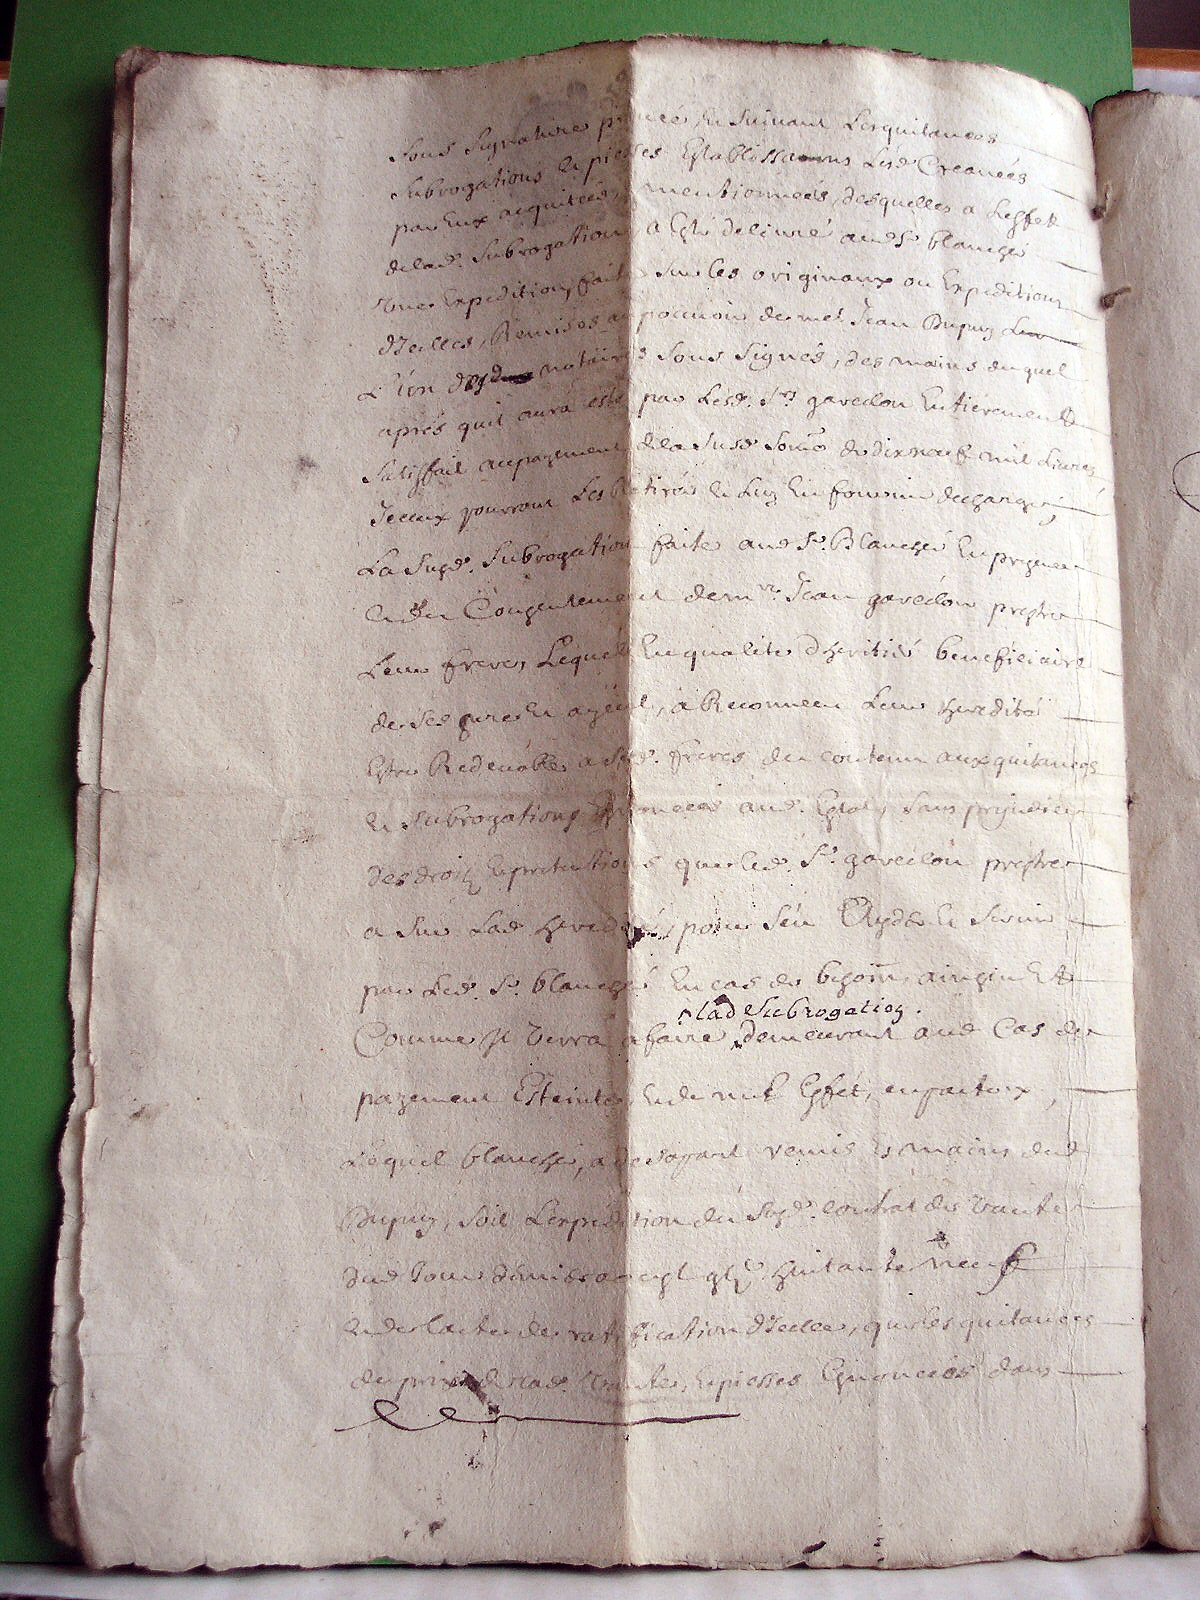 Sous signature privée, et suivant les quitances
subrogations et piesses establissans lesd. creances
par eux acquitées, mentionneés, desquelles a leffet
de lad. subrogation a esté délivré aud. Sr. blanché
une expedition, faite sur les originaux ou expeditions
d'Icelles, Remises au pouvoir de me. Jean Dupuy
L'un desd. notaires sous signés, des mains duquel
aprés quil aura esté par lesd. Srs. gavedon entierement
satisffait au payement de la susd. some de dix neuf mil Livres
Iceux pourront les retirer et luy en fournir decharge,
La susd. subrogation faite aud. Sr. Blanché en presence
et du Consentement de mre. Jean gavedon prestre
Leur frere, Lequel en qualité d'heritié beneficiaire
de ses pere et ayeul, a Reconneu Leur heredité
estre Redevable a sesd. freres du contenu aux quitances
et subrogations enoncées aud. estat, sans prejudice
des droits et pretentions que led. Sr. gavedon prestre
a sur lad. heredité, pour s'en Ayder et servir
par led. Sr. blanché en cas de besoin, ainsin et
Comme Il verra a faire, demeurant aud. Cas de
lad. subrogation.
payement Esteinte, et de nul effét, en facteur,
Lequel blanché, a de sa part remis es mains dud.
Dupuy, soit l'expedition du susd. contrat de vante
dud. Jour huitante neuf
et de l'acte de ratification d'Icelle, que les quitances
du prix de lad. vante, et piesses enonceés dans